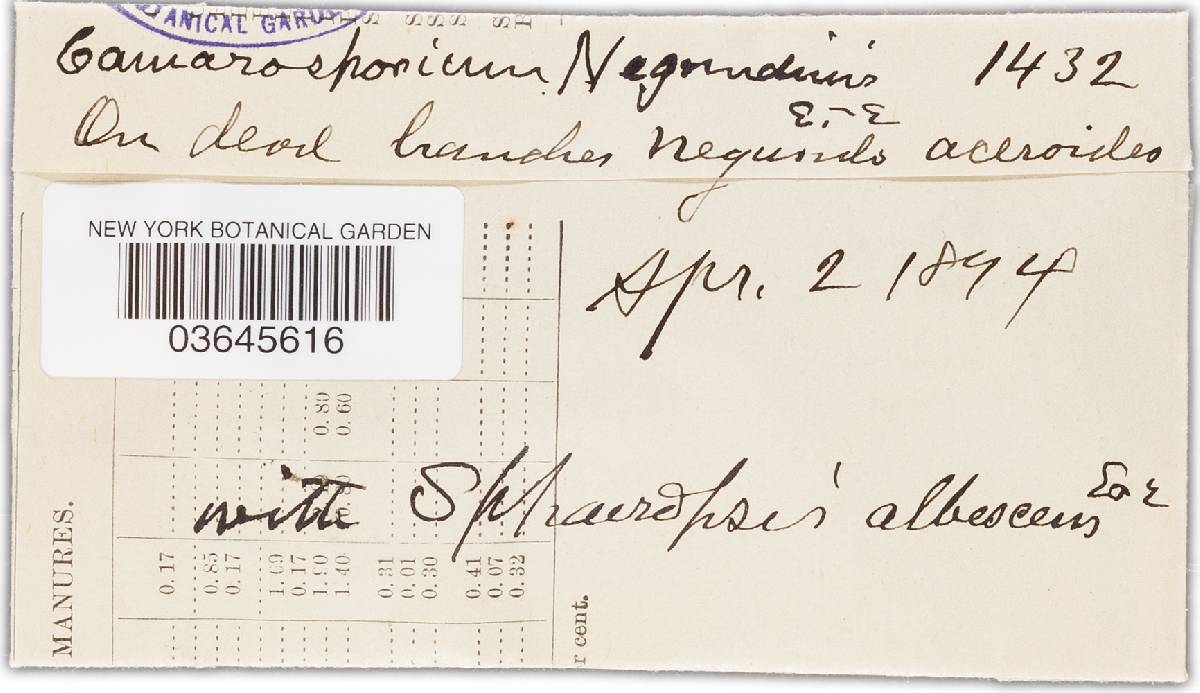 ANICAL GARD
Camarosporium Negundinis 1432
E.-E
On dead branches Negundo aceroides
NEW YORK BOTANICAL GARDEN
03645616
Apr. 2 1894
0.80
0.60
with Sphaeropsis albescens E & E
MANURES.
0.17
0.85
0.17
1.69
0.17
1.90
1.40
0.31
0.01
0.30
0.41
0.07
0.32
r cent.